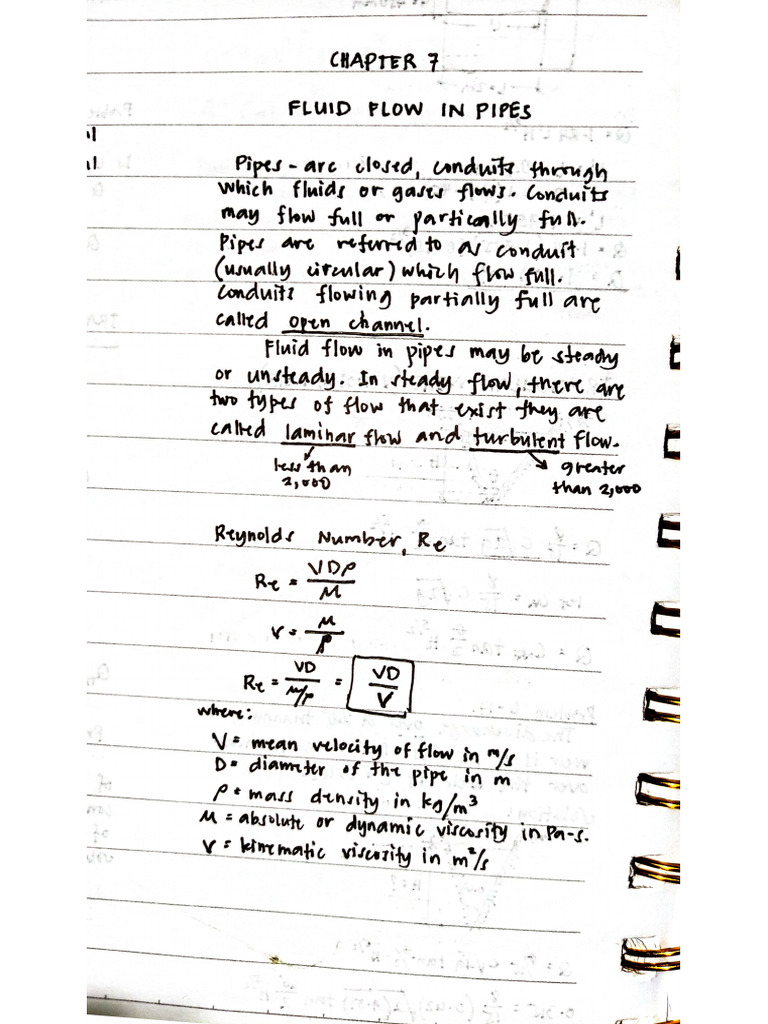 CHAPTER 7
FLUID FLOW IN PIPES
Pipes - are closed, conduits through
which fluids or gases flows. Conduits
may flow full or partically full.
Pipes are referred to as conduit
(usually circular) which flow full.
Conduits flowing partially full are
called open channel.
Fluid flow in pipes may be steady
or unsteady. In steady flow, there are
two types of flow that exist they are
called laminar flow and turbulent flow.
less than
2,000
greater
than 2,000
Reynolds Number, Re
Re = VDρ/μ
ν = μ/ρ
Re = VD/μ/ρ = VD/ν
where:
V = mean velocity of flow in m/s
D = diameter of the pipe in m
ρ = mass density in kg/m³
μ = absolute or dynamic viscosity in Pa-s.
ν = kinematic viscosity in m²/s